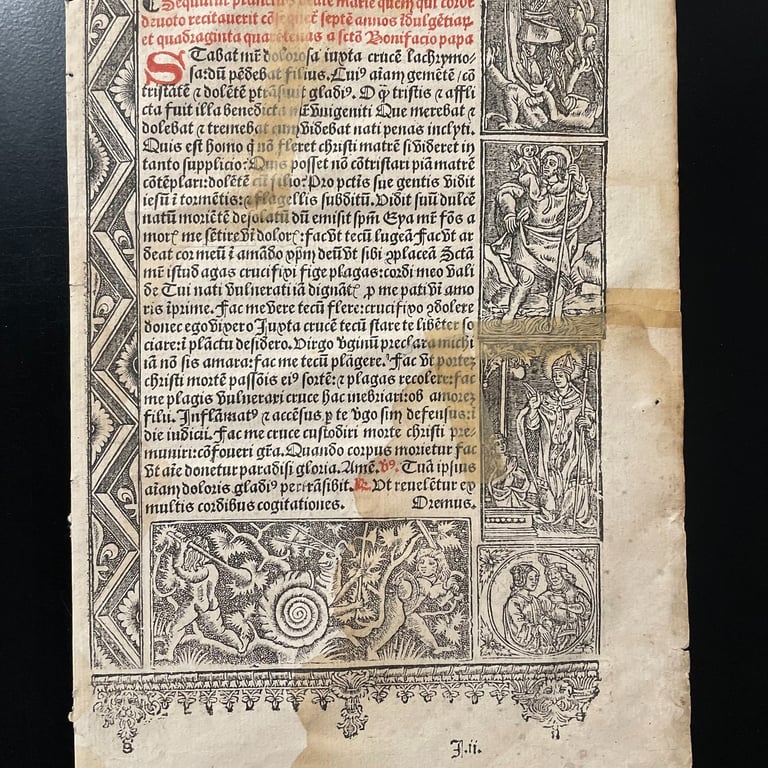 Sequitur planctus beate marie quem qui corde
deuoto recitauerit cōsequet̄ septē annos īdulgētiaꝝ
et quadraginta quarētenas a sctō Bonifacio papa
Stabat mr̄ dolorosa iuxta crucē lachrymo⸗
sa: dū pēdebat filius. Cuiꝰ aīam gemētē / cō
tristātē ⁊ dolētē ptrāsiuit gladiꝰ. O ꝙ̄ tristis ⁊ affli
cta fuit illa benedicta mr̄ vnigeniti Que merebat ⁊
dolebat ⁊ tremebat cum videbat nati penas inclyti.
Quis est homo q̇ nō fleret christi matrē si videret in
tanto supplicio: Quis posset nō cōtristari piā matrē
cōtēplari: dolētē cū filio: Pro pctīs sue gentis vidit
iesū ī tormētis: ⁊ flagellis subditū. Vidit suū dulcē
natū moriētē desolatū dū emisit spm̄ Eya mr̄ fōs a
moꝝ me sētire vī doloꝝ: fac vt tecū lugeā Fac vt ar
deat cor meū ī amādo xp̄m deū vt sibi ꝯplaceā Sctā
mr̄ istud agas crucifixi fige plagas: cordi meo vali
de Tui nati vulnerati iā dignat̄ ꝓ me pati vī amo
ris īprime. Fac me vere tecū flere: crucifixo ꝯdolere
donec ego vixero Juxta crucē tecū stare te libēter so
ciare: ī plāctu desidero. Virgo vginū preclara michi
iā nō sis amara: fac me tecū plāgere. Fac vt portez
christi mortē passōis eiꝰ sortē: ⁊ plagas recolere: fac
me plagis vulnerari cruce hac inebriari: ob amorez
filii. Inflāmatꝰ ⁊ accēsus ꝑ te vgo sim defensus: ī
die iudicii. Fac me cruce custodiri morte christi pre⸗
muniri: cōfoueri gr̄a. Quando corpus morietur fac
vt aīe donetur paradisi gloria. Amē. ℣. Tuā ipsius
aīam doloris gladiꝰ pertrāsibit. ℟. Vt reuelētur ex
multis cordibus cogitationes. Oremus.
J.ii.